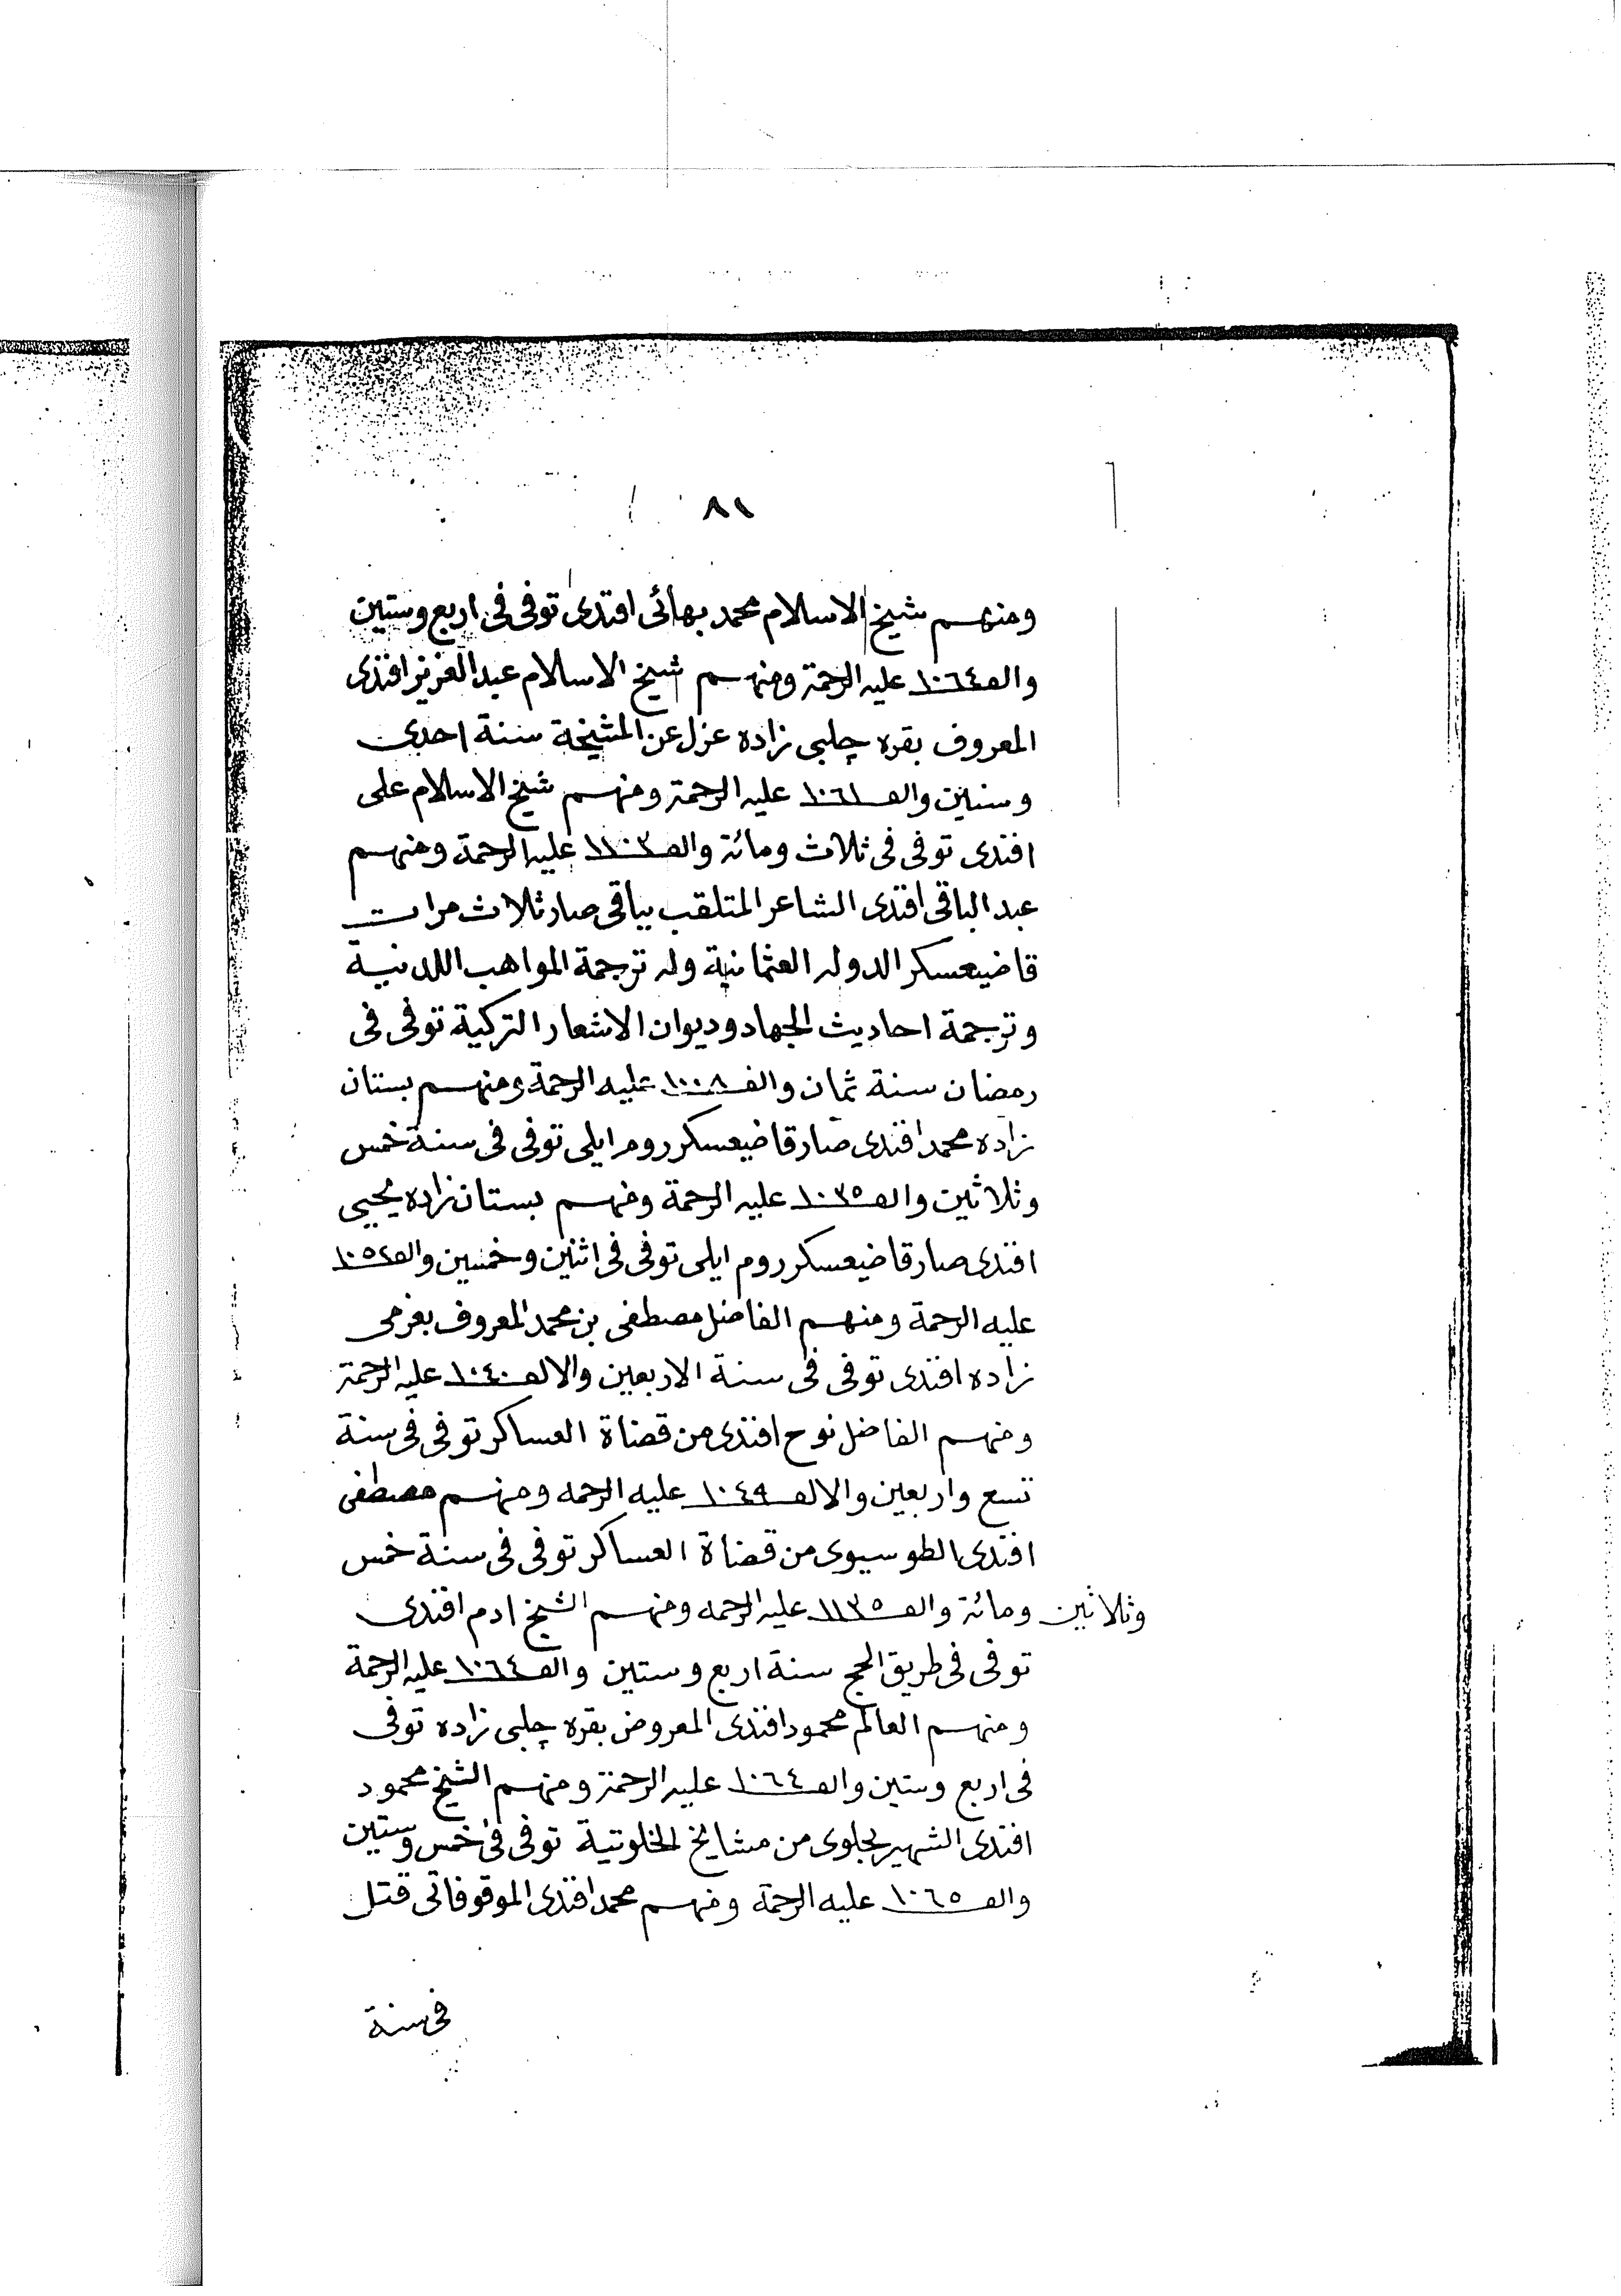 ٨١
ومنهم شيخ الاسلام محمد بهائى افندى توفى فى اربع وستين
والف ١٠٦٤ عليه الرحمة ومنهم شيخ الاسلام عبد العزيز افندى
المعروف بقره چلبى زاده عزل عن المشيخة سنة احدى
وستين والف ١٠٦١ عليه الرحمة ومنهم شيخ الاسلام على
افندى توفى فى ثلاث ومائة والف ١١٠٣ عليه الرحمة ومنهم
عبد الباقى افندى الشاعر المتلقب بباقى صار ثلاث مرات
قاضيعسكر الدوله العثمانية وله ترجمة المواهب اللدنية
وترجمة احاديث الجهاد وديوان الاشعار التركية توفى فى
رمضان سنة ثمان والف ١٠٠٨ عليه الرحمة ومنهم بستان
زاده محمد افندى صار قاضيعسكر روم ايلى توفى فى سنة خمس
وثلاثين والف ١٠٣٥ عليه الرحمة ومنهم بستان زاده يحيى
افندى صار قاضيعسكر روم ايلى توفى فى اثنين وخمسين والف ١٠٥٢
عليه الرحمة ومنهم الفاضل مصطفى بن محمد المعروف بعزمى
زاده افندى توفى فى سنة الاربعين والالف ١٠٤٠ عليه الرحمة
ومنهم الفاضل نوح افندى من قضاة العساكر توفى فى سنة
تسع واربعين والالف ١٠٤٩ عليه الرحمه ومنهم مصطفى
افندى الطوسيوى من قضاة العساكر توفى فى سنة خمس
وثلاثين ومائة والف ١١٣٥ عليه الرحمه ومنهم الشيخ ادم افندى
توفى فى طريق الحج سنة اربع وستين والف ١٠٦٤ عليه الرحمة
ومنهم العالم محمود افندى المعروف بقره چلبى زاده توفى
فى اربع وستين والف ١٠٦٤ عليه الرحمة ومنهم الشيخ محمود
افندى الشهير بجلوى من مشايخ الخلوتية توفى فى خمس وستين
والف ١٠٦٥ عليه الرحمة ومنهم محمد افندى الموقوفاتى قتل
فى سنة